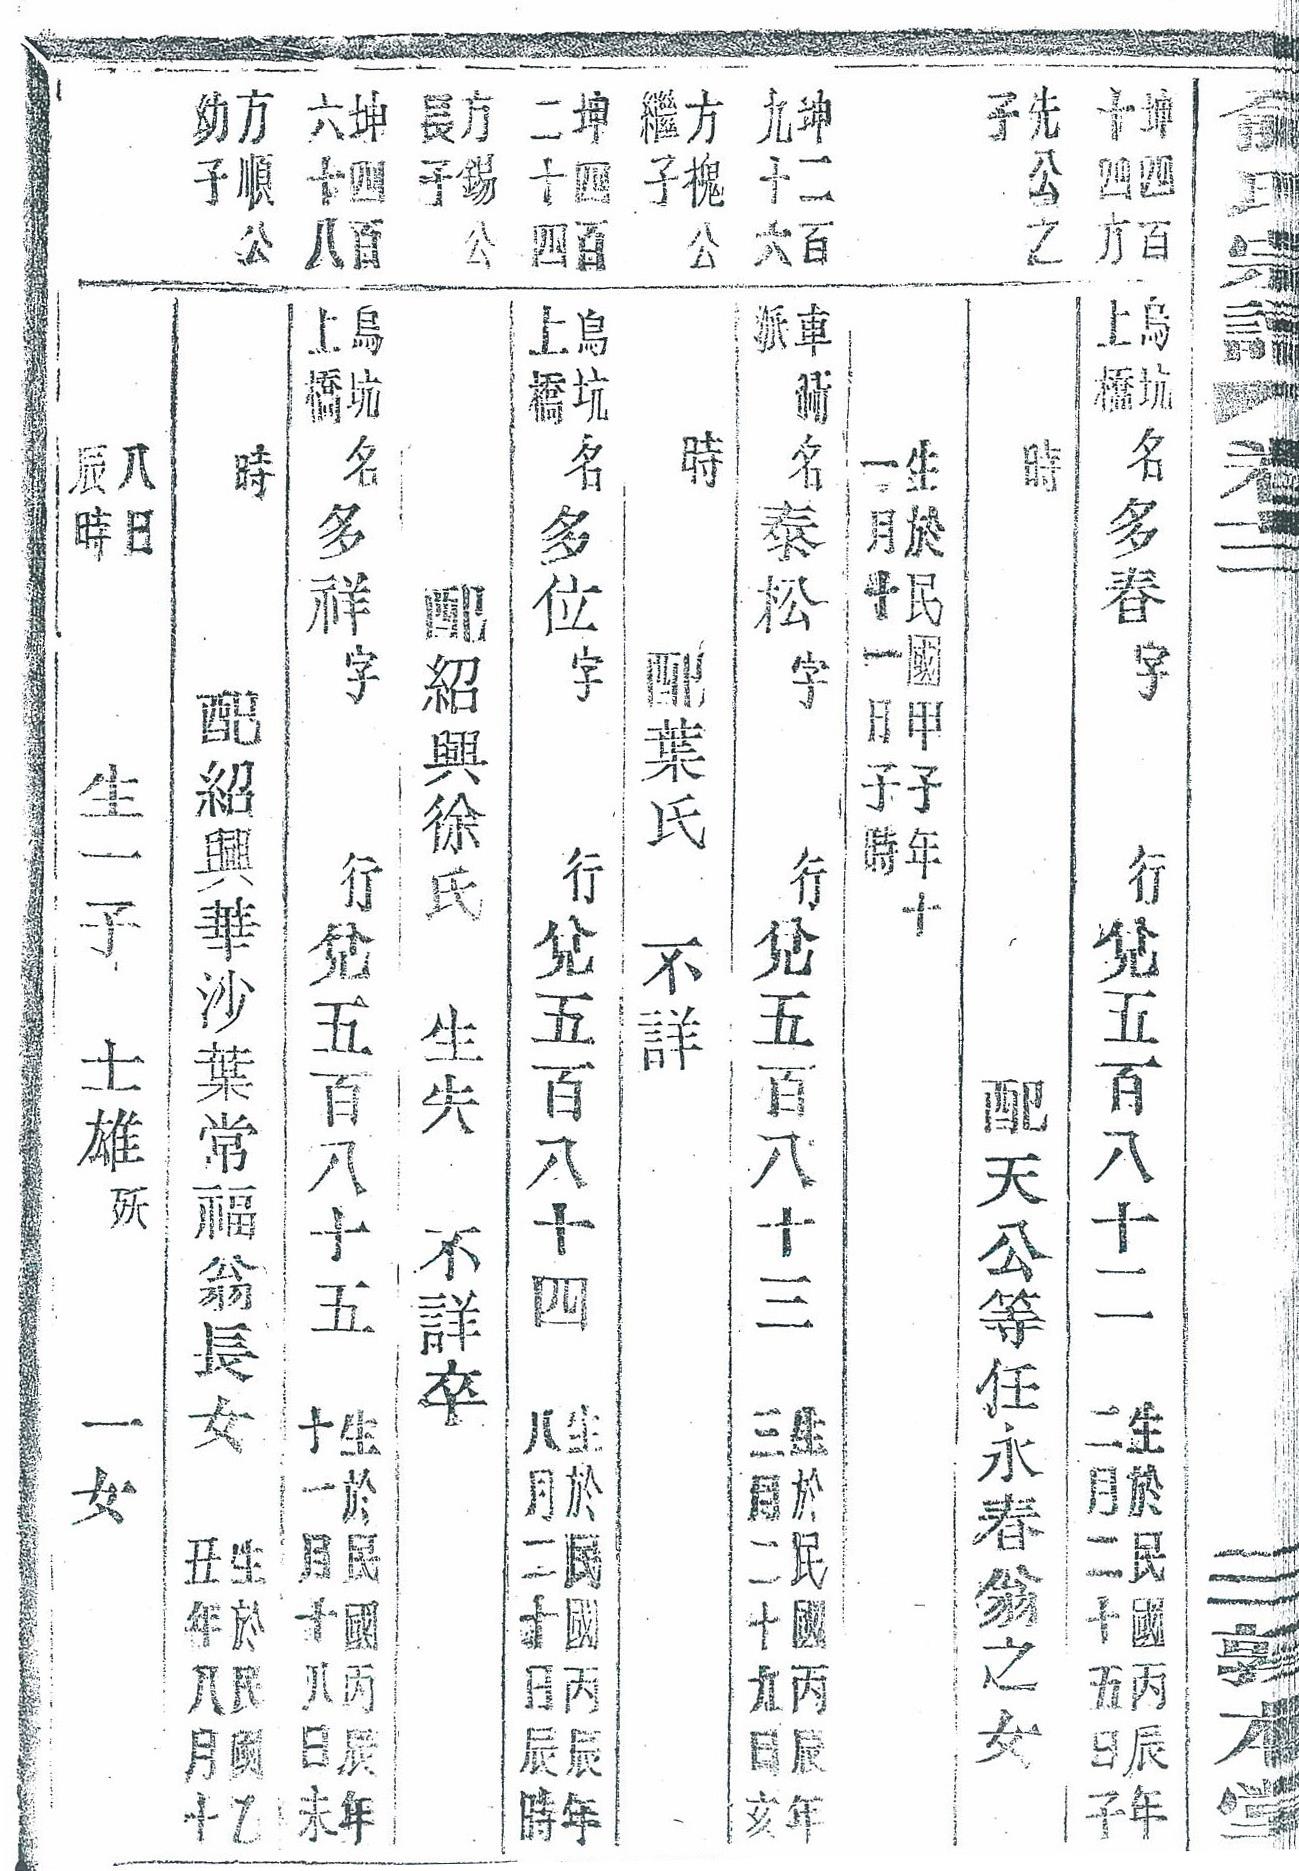 俞氏宗譜 卷二 三 敦本堂
坤四百
十四方
先公之
子
烏坑
上橋
名多春字 行兌五百八十二
生於民國丙辰年
二月二十五日子
時 配天公等任永春翁之女
生於民國甲子年十
一月十一日子時
坤二百
九十六
方槐公
繼子
車衕
派
名泰松字 行兌五百八十三
生於民國丙辰年
三月二十九日亥
時 配葉氏 不詳
坤四百
二十四
方錫公
長子
烏坑
上橋
名多位字 行兌五百八十四
生於民國丙辰年
八月二十日辰時
配紹興徐氏 生失 不詳卒
坤四百
六十八
方順公
幼子
烏坑
上橋
名多祥字 行兌五百八十五
生於民國丙辰年
十一月十八日未
時 配紹興華沙葉常福翁長女
生於民國乙
丑年八月十
八日
辰時
生一子 士雄 殀 一女